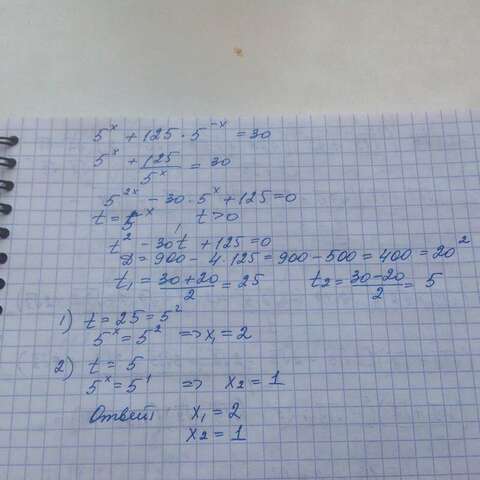 5^x + 125 · 5^{-x} = 30
5^x + 125/5^x = 30
5^{2x} - 30 · 5^x + 125 = 0
t = 5^x, t > 0
t^2 - 30t + 125 = 0
D = 900 - 4·125 = 900 - 500 = 400 = 20^2
t_1 = (30+20)/2 = 25 t_2 = (30-20)/2 = 5
1) t = 25 = 5^2
5^x = 5^2 => x_1 = 2
2) t = 5
5^x = 5^1 => x_2 = 1
Ответ: x_1 = 2
x_2 = 1